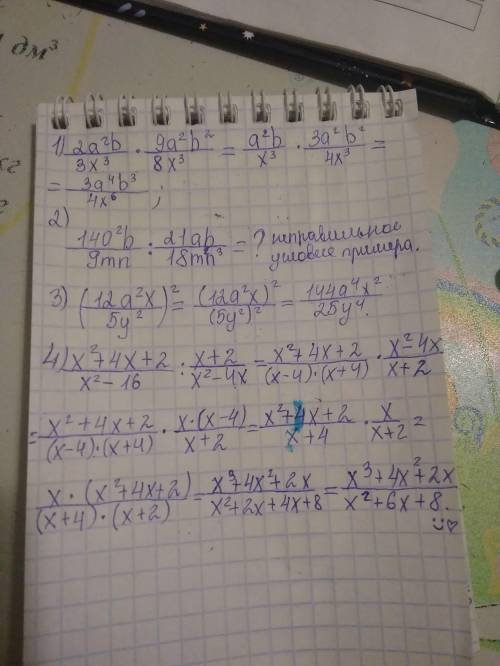 дм³
1) 2a²b/3x³ · 9a²b²/8x³ = a²b/x³ · 3a²b²/4x³ =
= 3a⁴b³/4x⁶ ;
2)
140²b/9mn : 21ab/18mn³ = ? неправильное
условие примера.
3) (12a²x/5y²)² = (12a²x)²/(5y²)² = 144a⁴x²/25y⁴.
4) x²+4x+2/x²-16 : x+2/x²-4x = x²+4x+2/(x-4)·(x+4) · x²-4x/x+2
= x²+4x+2/(x-4)·(x+4) · x·(x-4)/x+2 = x²+4x+2/x+4 · x/x+2 =
x·(x²+4x+2)/(x+4)·(x+2) = x³+4x²+2x/x²+2x+4x+8 = x³+4x²+2x/x²+6x+8.